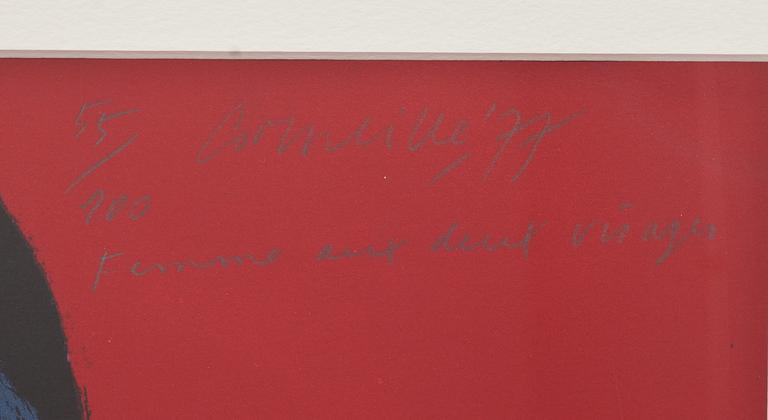 55/100 Corneille '77
Femme aux deux visages